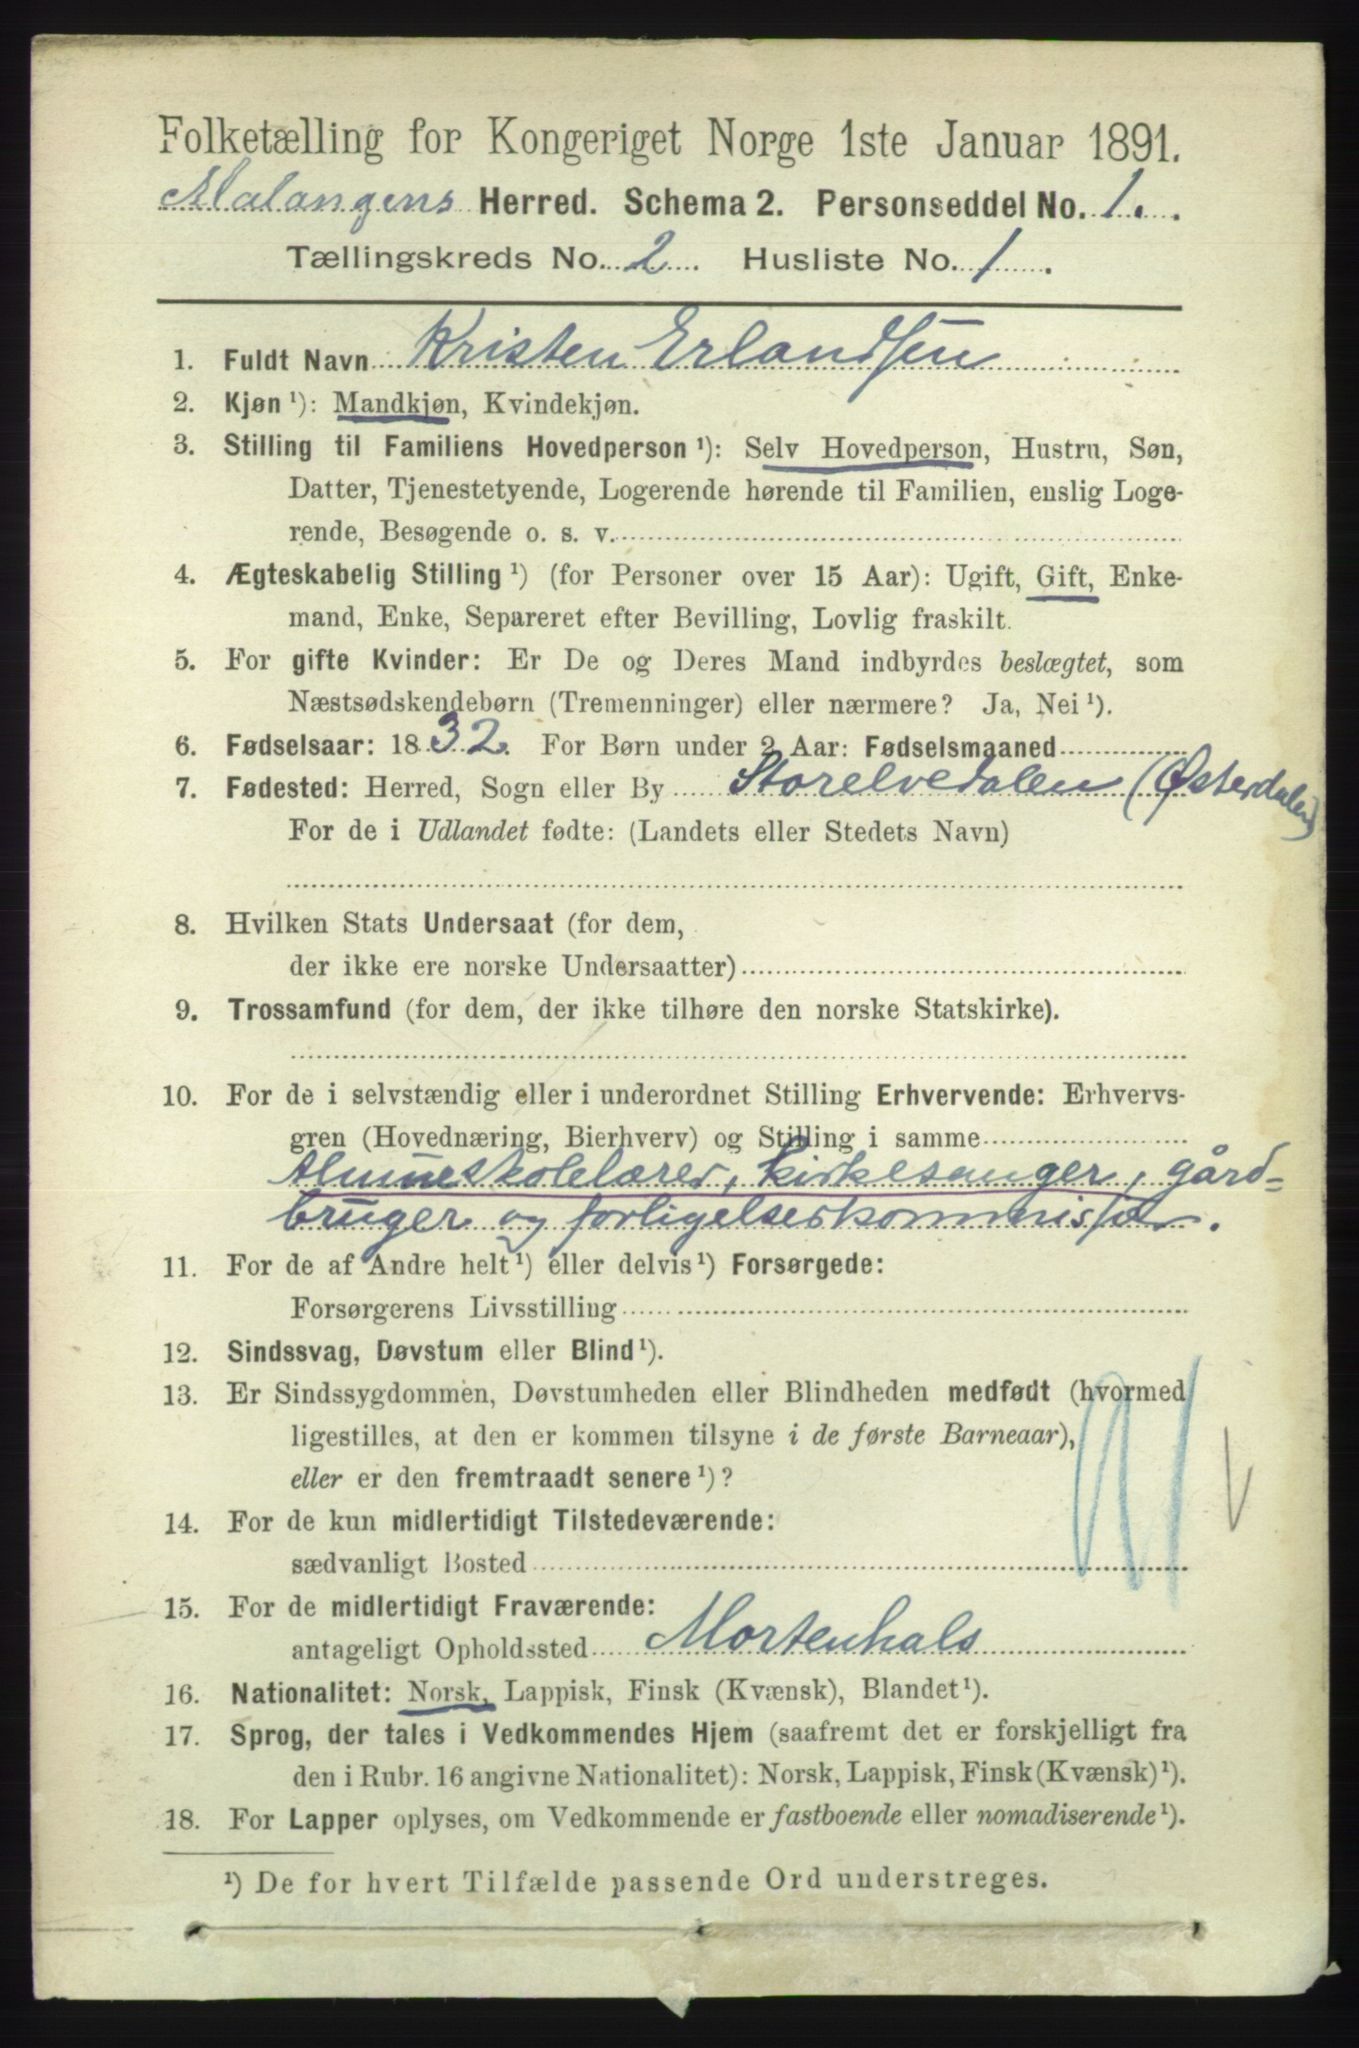 Folketælling for Kongeriget Norge 1ste Januar 1891.
Malangens Herred. Schema 2. Personseddel No. 1.
Tællingskreds No. 2. Husliste No. 1.
1. Fuldt Navn Kristen Erlandsen
2. Kjøn ¹): Mandkjøn, Kvindekjøn.
3. Stilling til Familiens Hovedperson ¹): Selv Hovedperson, Hustru, Søn,
Datter, Tjenestetyende, Logerende hørende til Familien, enslig Loge-
rende, Besøgende o. s. v.
4. Ægteskabelig Stilling ¹) (for Personer over 15 Aar): Ugift, Gift, Enke-
mand, Enke, Separeret efter Bevilling, Lovlig fraskilt.
5. For gifte Kvinder: Er De og Deres Mand indbyrdes beslægtet, som
Næstsødskendebørn (Tremenninger) eller nærmere? Ja, Nei ¹).
6. Fødselsaar: 1832. For Børn under 2 Aar: Fødselsmaaned
7. Fødested: Herred, Sogn eller By Storelvedalen (Østerdalen)
For de i Udlandet fødte: (Landets eller Stedets Navn)
8. Hvilken Stats Undersaat (for dem,
der ikke ere norske Undersaatter)
9. Trossamfund (for dem, der ikke tilhøre den norske Statskirke).
10. For de i selvstændig eller i underordnet Stilling Erhvervende: Erhvervs-
gren (Hovednæring, Bierhverv) og Stilling i samme
Almueskolelærer, kirkesanger, gård=
bruger og forligelseskommissær.
11. For de af Andre helt ¹) eller delvis ¹) Forsørgede:
Forsørgerens Livsstilling
12. Sindssvag, Døvstum eller Blind ¹).
13. Er Sindssygdommen, Døvstumheden eller Blindheden medfødt (hvormed
ligestilles, at den er kommen tilsyne i de første Barneaar),
eller er den fremtraadt senere ¹)?
14. For de kun midlertidigt Tilstedeværende:
sædvanligt Bosted
15. For de midlertidigt Fraværende:
antageligt Opholdssted Mortenhals
16. Nationalitet: Norsk, Lappisk, Finsk (Kvænsk), Blandet ¹).
17. Sprog, der tales i Vedkommendes Hjem (saafremt det er forskjelligt fra
den i Rubr. 16 angivne Nationalitet): Norsk, Lappisk, Finsk (Kvænsk) ¹).
18. For Lapper oplyses, om Vedkommende er fastboende eller nomadiserende ¹).
¹) De for hvert Tilfælde passende Ord understreges.